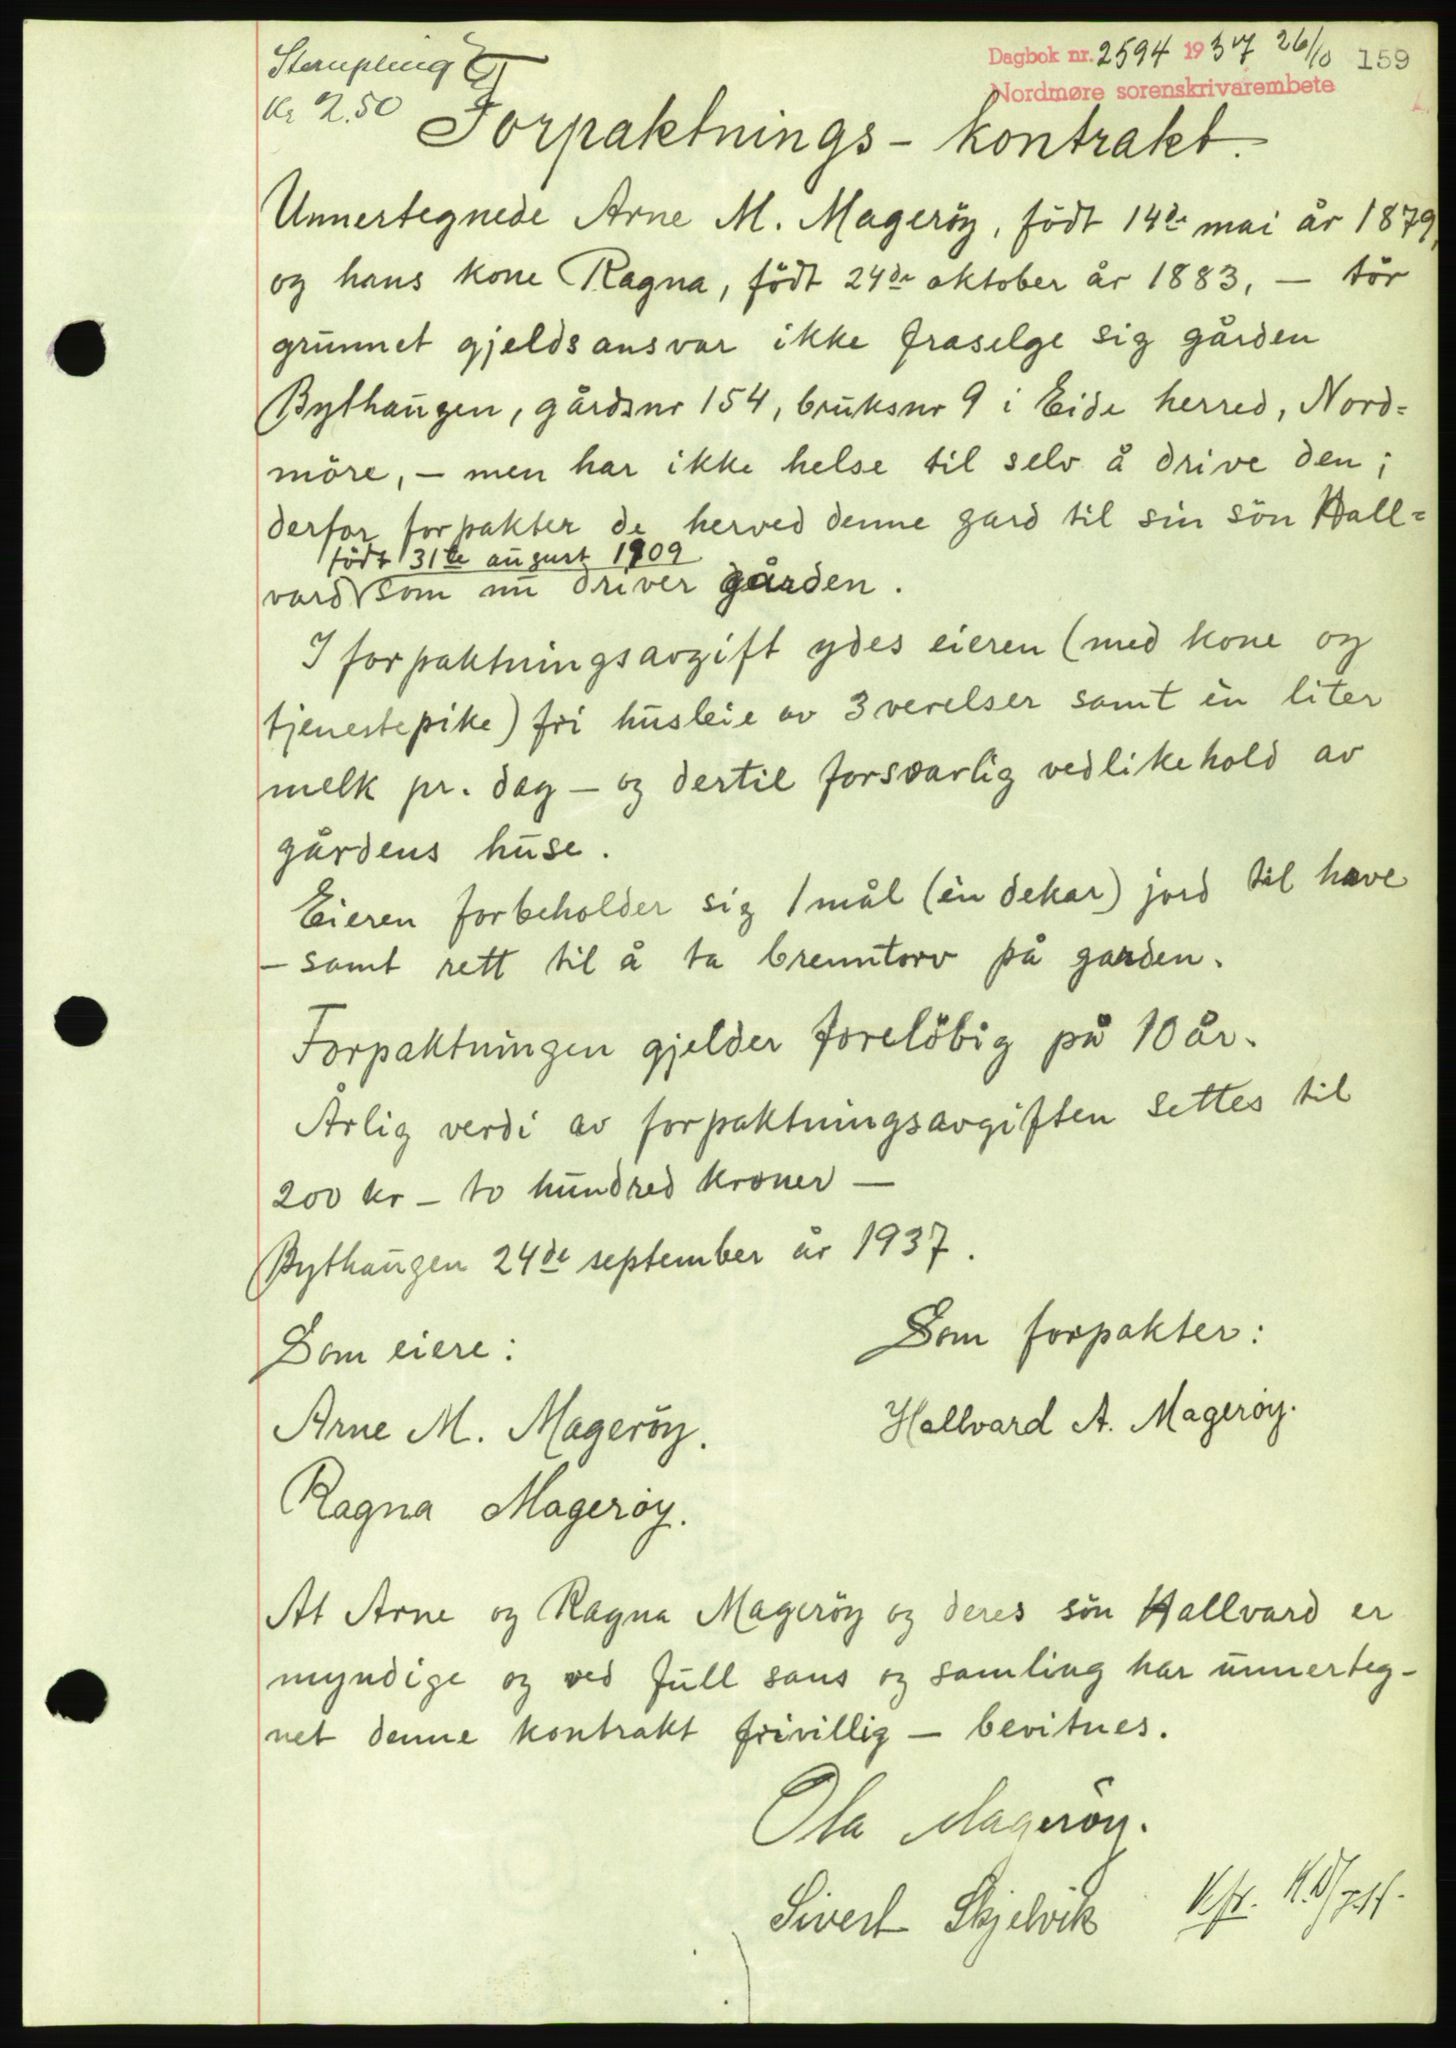 Stempling
Kr 2.50
Dagbok nr. 2594 1937 26/10 159
Nordmøre sorenskrivarembete
Forpaktnings - kontrakt.
Unnertegnede Arne M. Mageröy, födt 14de mai år 1879,
og hans kone Ragna, födt 24de oktober år 1883, — tör
grunnet gjeldsansvar ikke fraselge sig gården
Bythaugen, gårdsnr 154, bruksnr 9 i Eide herred, Nord=
möre, — men har ikke helse til selv å drive den;
derfor forpakter de herved denne gard til sin sön Hall=
födt 31te august 1909
vard som nu driver gården.
I forpaktningsavgift ydes eieren (med kone og
tjenestepike) fri husleie av 3 verelser samt èn liter
melk pr. dag — og dertil forsvarlig vedlikehold av
gårdens huse.
Eieren forbeholder sig 1 mål (èn dekar) jord til have
— samt rett til å ta brenntorv på garden.
Forpaktningen gjelder forelöbig på 10 år.
Årlig verdi av forpaktningsavgiften settes til
200 kr — to hundred kroner —
Bythaugen 24de september år 1937.
Som eiere:
Som forpakter:
Arne M. Mageröy.
Hallvard A. Magerøy.
Ragna Magerøy.
At Arne og Ragna Mageröy og deres sön Hallvard er
myndige og ved full sans og samling har unnerteg-
net denne kontrakt frivillig — bevitnes.
Ola Mageröy.
Sivert Skjelvik